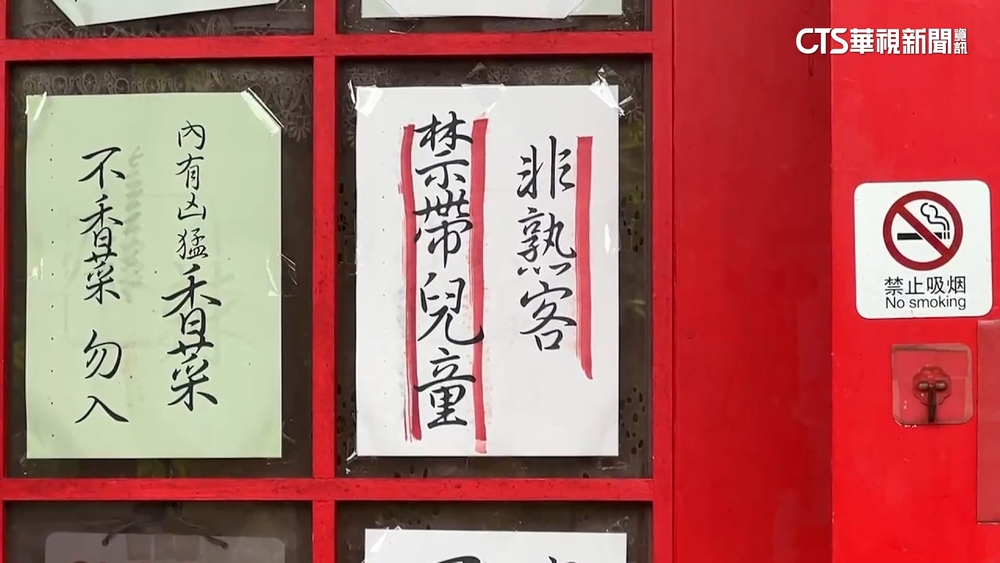 CTS華視新聞資訊
內有凶猛香菜
不香菜 勿入
非熟客
禁帶兒童
禁止吸烟
No smoking